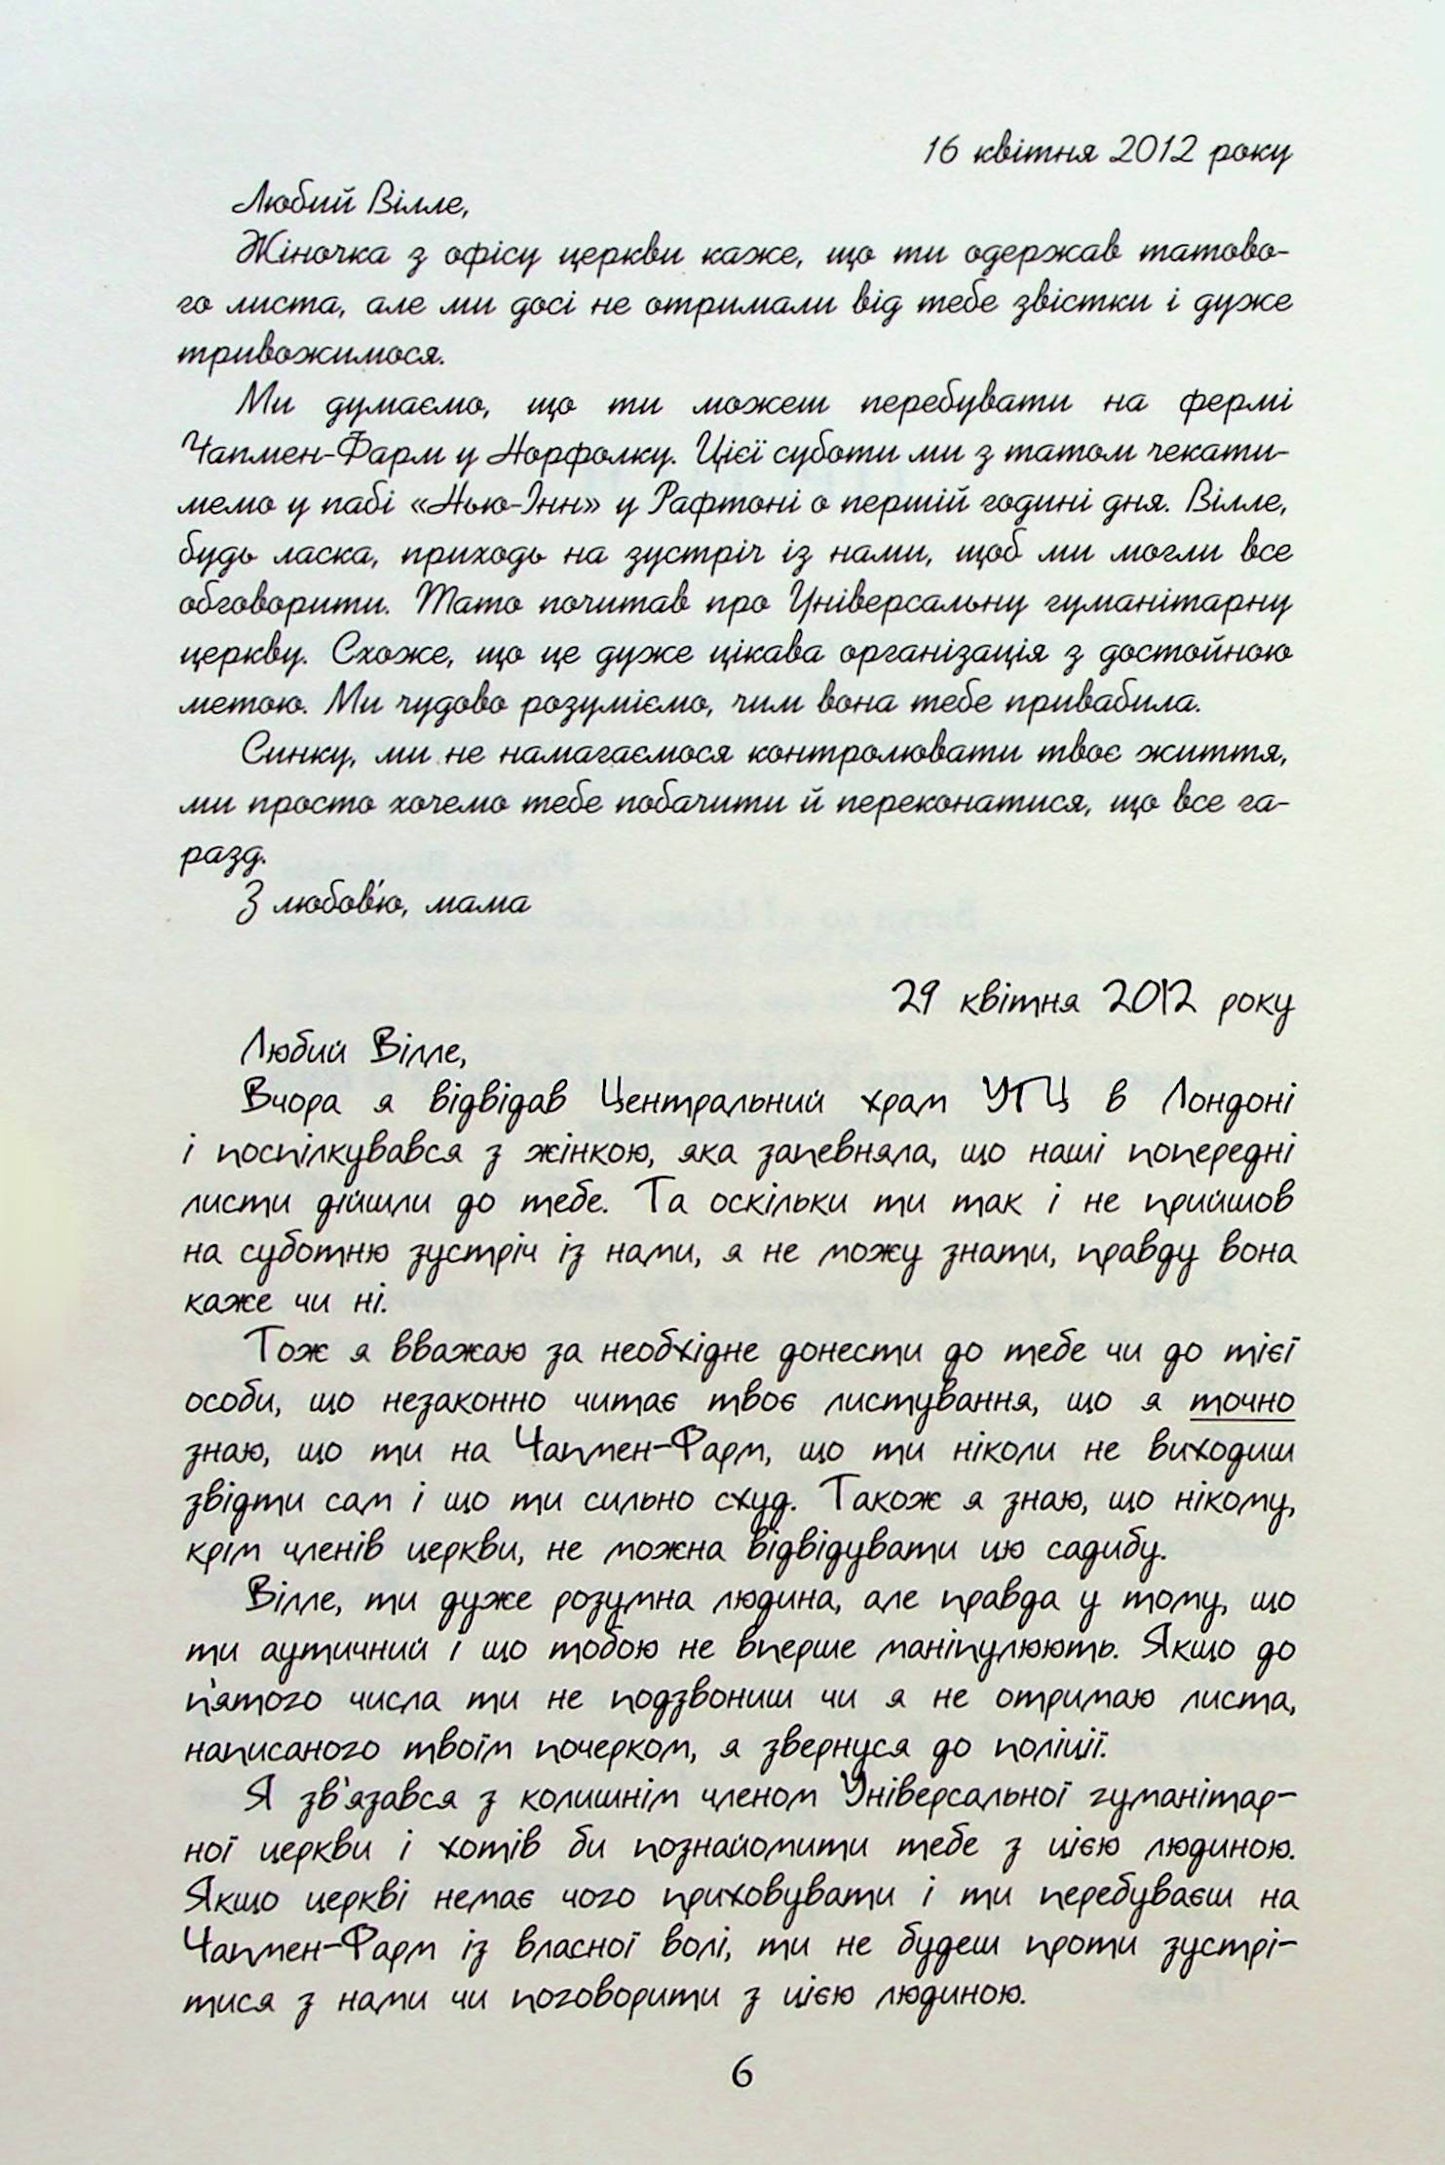 16 квітня 2012 року
Любий Вілле,
Жіночка з офісу церкви каже, що ти одержав татово-
го листа, але ми досі не отримали від тебе звістки і дуже
тривожимося.
Ми думаємо, що ти можеш перебувати на фермі
Чапмен-Фарм у Норфолку. Цієї суботи ми з татом чекати-
мемо у пабі «Нью-Інн» у Рафтоні о першій годині дня. Вілле,
будь ласка, приходь на зустріч із нами, щоб ми могли все
обговорити. Тато почитав про Універсальну гуманітарну
церкву. Схоже, що це дуже цікава організація з достойною
метою. Ми чудово розуміємо, чим вона тебе привабила.
Синку, ми не намагаємося контролювати твоє життя,
ми просто хочемо тебе побачити й переконатися, що все га-
разд.
З любов'ю, мама
29 квітня 2012 року
Любий Вілле,
Вчора я відвідав Центральний храм УГЦ в Лондоні
і поспілкувався з жінкою, яка запевняла, що наші попередні
листи дійшли до тебе. Та оскільки ти так і не прийшов
на суботню зустріч із нами, я не можу знати, правду вона
каже чи ні.
Тож я вважаю за необхідне донести до тебе чи до тієї
особи, що незаконно читає твоє листування, що я точно
знаю, що ти на Чапмен-Фарм, що ти ніколи не виходиш
звідти сам і що ти сильно схуд. Також я знаю, що нікому,
крім членів церкви, не можна відвідувати цю садибу.
Вілле, ти дуже розумна людина, але правда у тому, що
ти аутичний і що тобою не вперше маніпулюють. Якщо до
п'ятого числа ти не подзвониш чи я не отримаю листа,
написаного твоїм почерком, я звернуся до поліції.
Я зв'язався з колишнім членом Універсальної гуманітар-
ної церкви і хотів би познайомити тебе з цією людиною.
Якщо церкві немає чого приховувати і ти перебуваєш на
Чапмен-Фарм із власної волі, ти не будеш проти зустрі-
тися з нами чи поговорити з цією людиною.
6